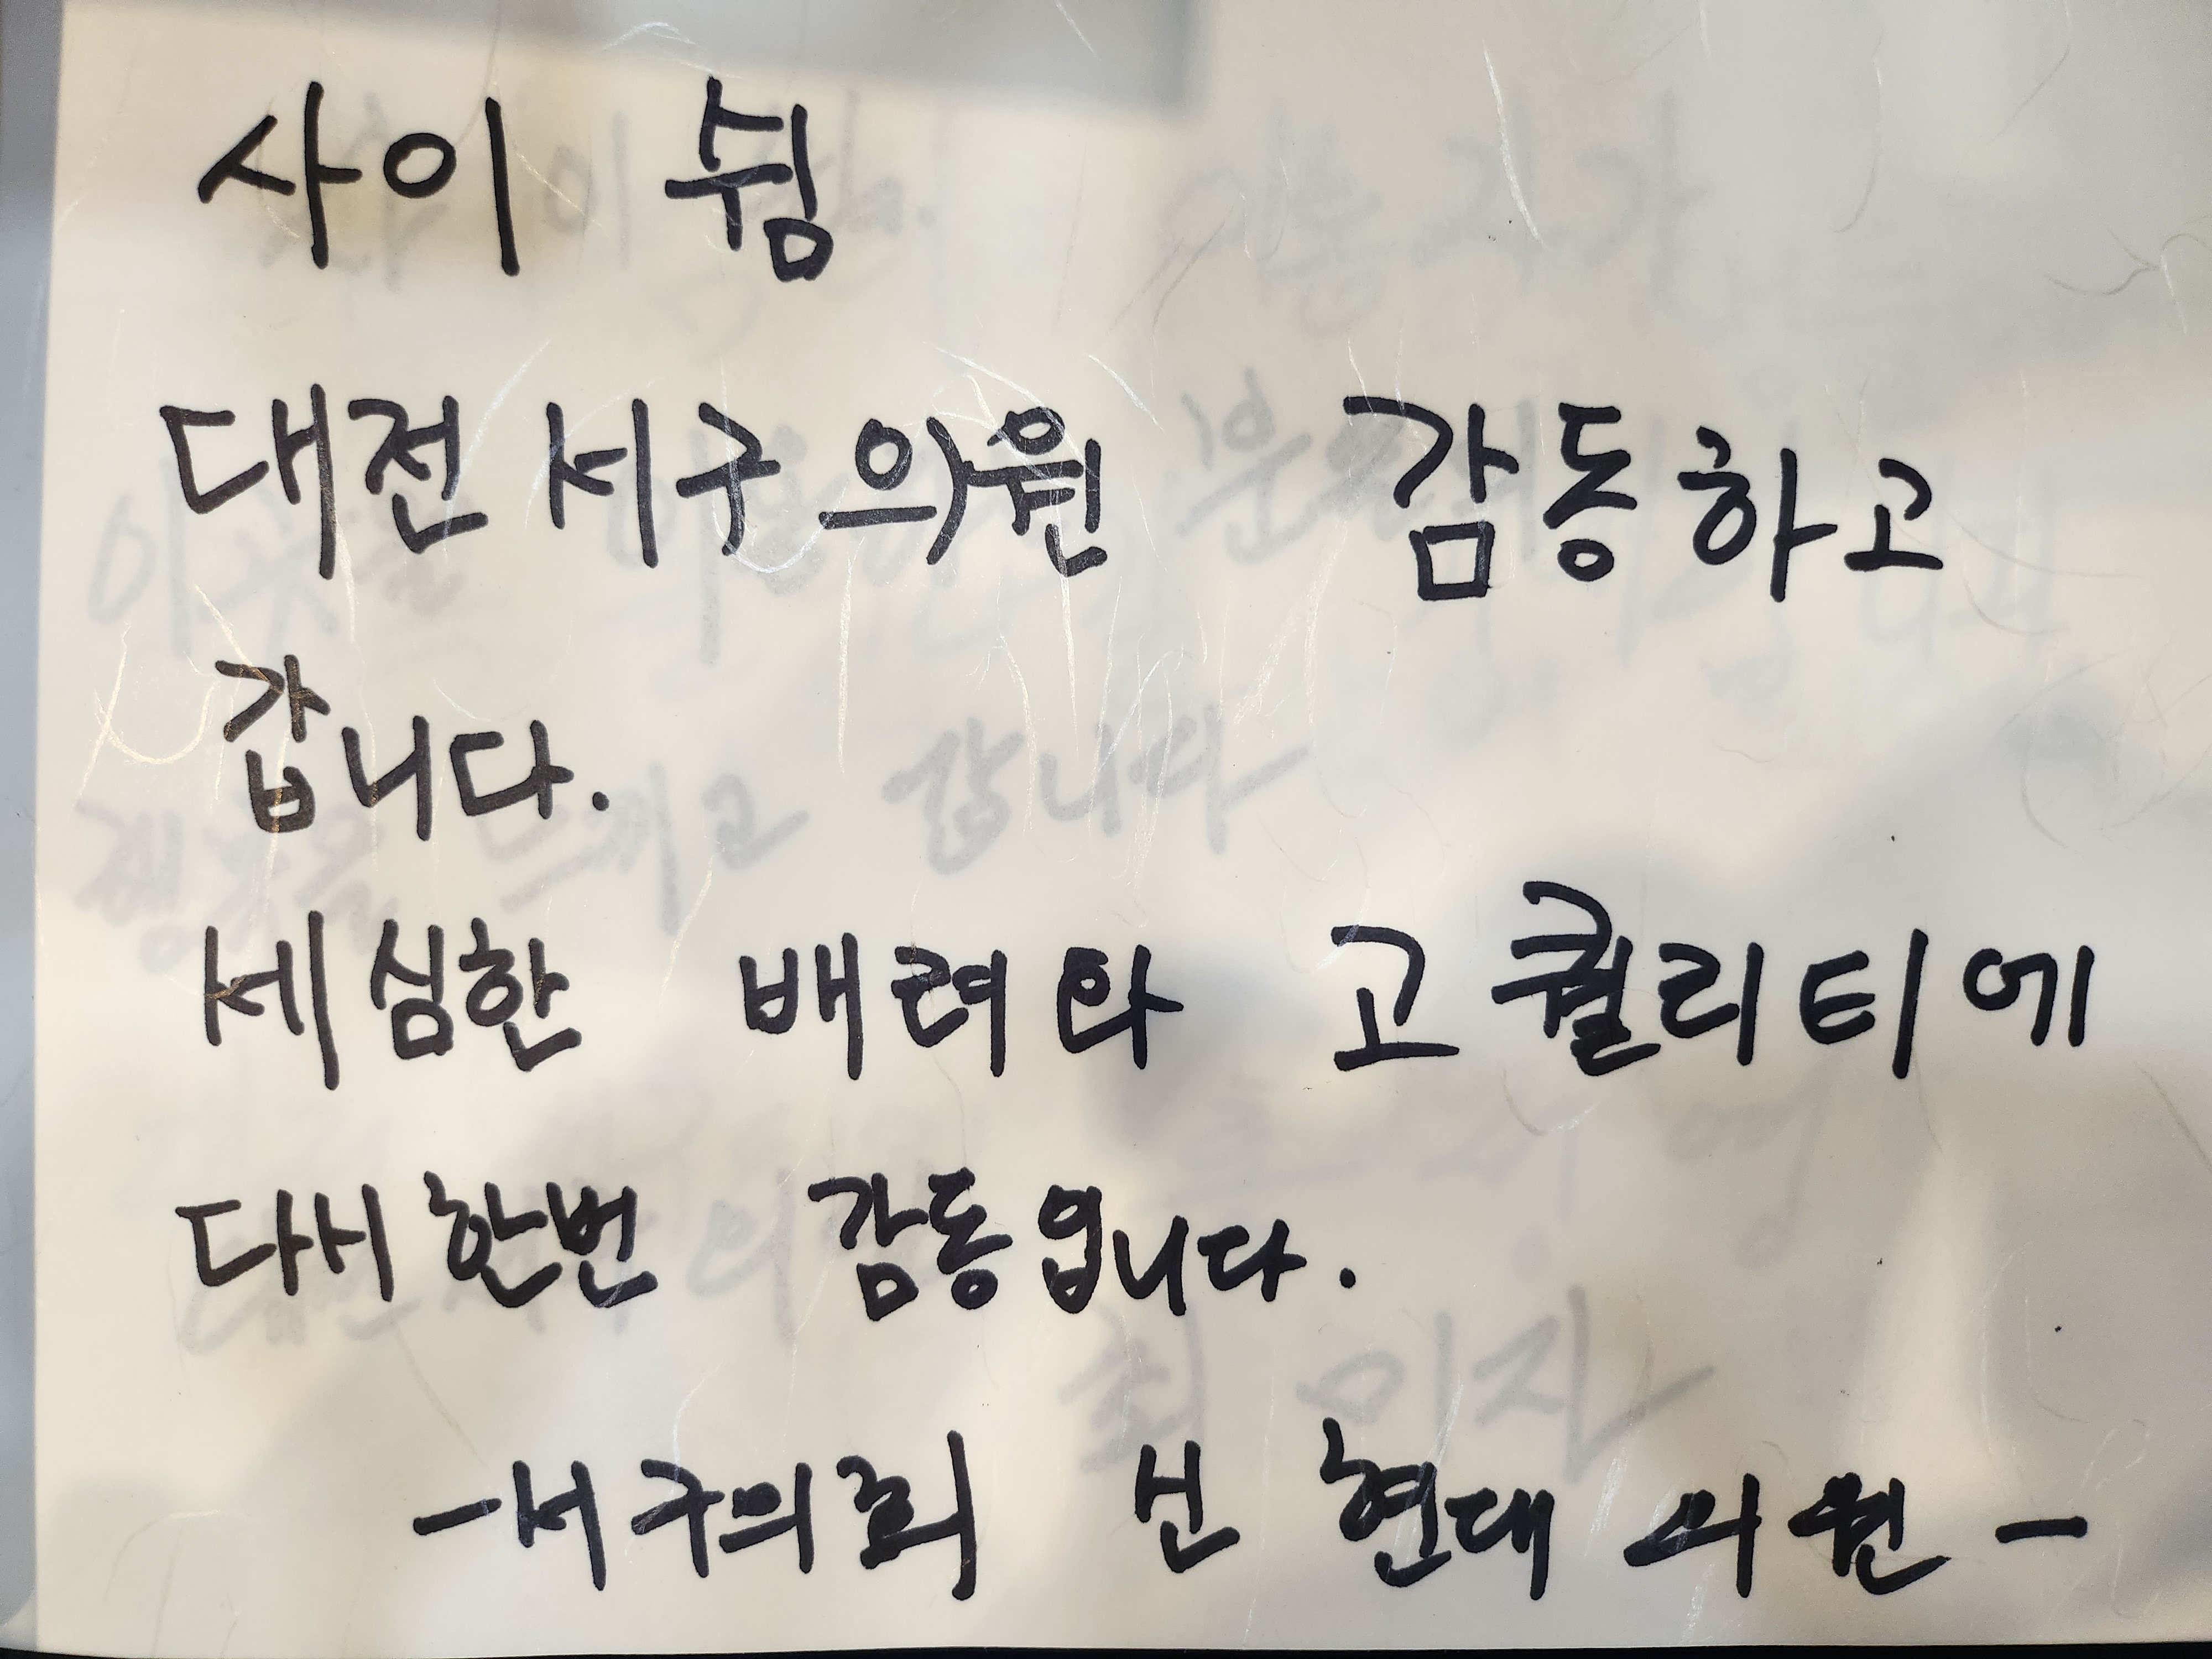 사이 쉼
대전 서구의원 감동하고
갑니다.
세심한 배려와 고퀄리티에
다시한번 감동입니다.
-서구의회 신현대 의원-